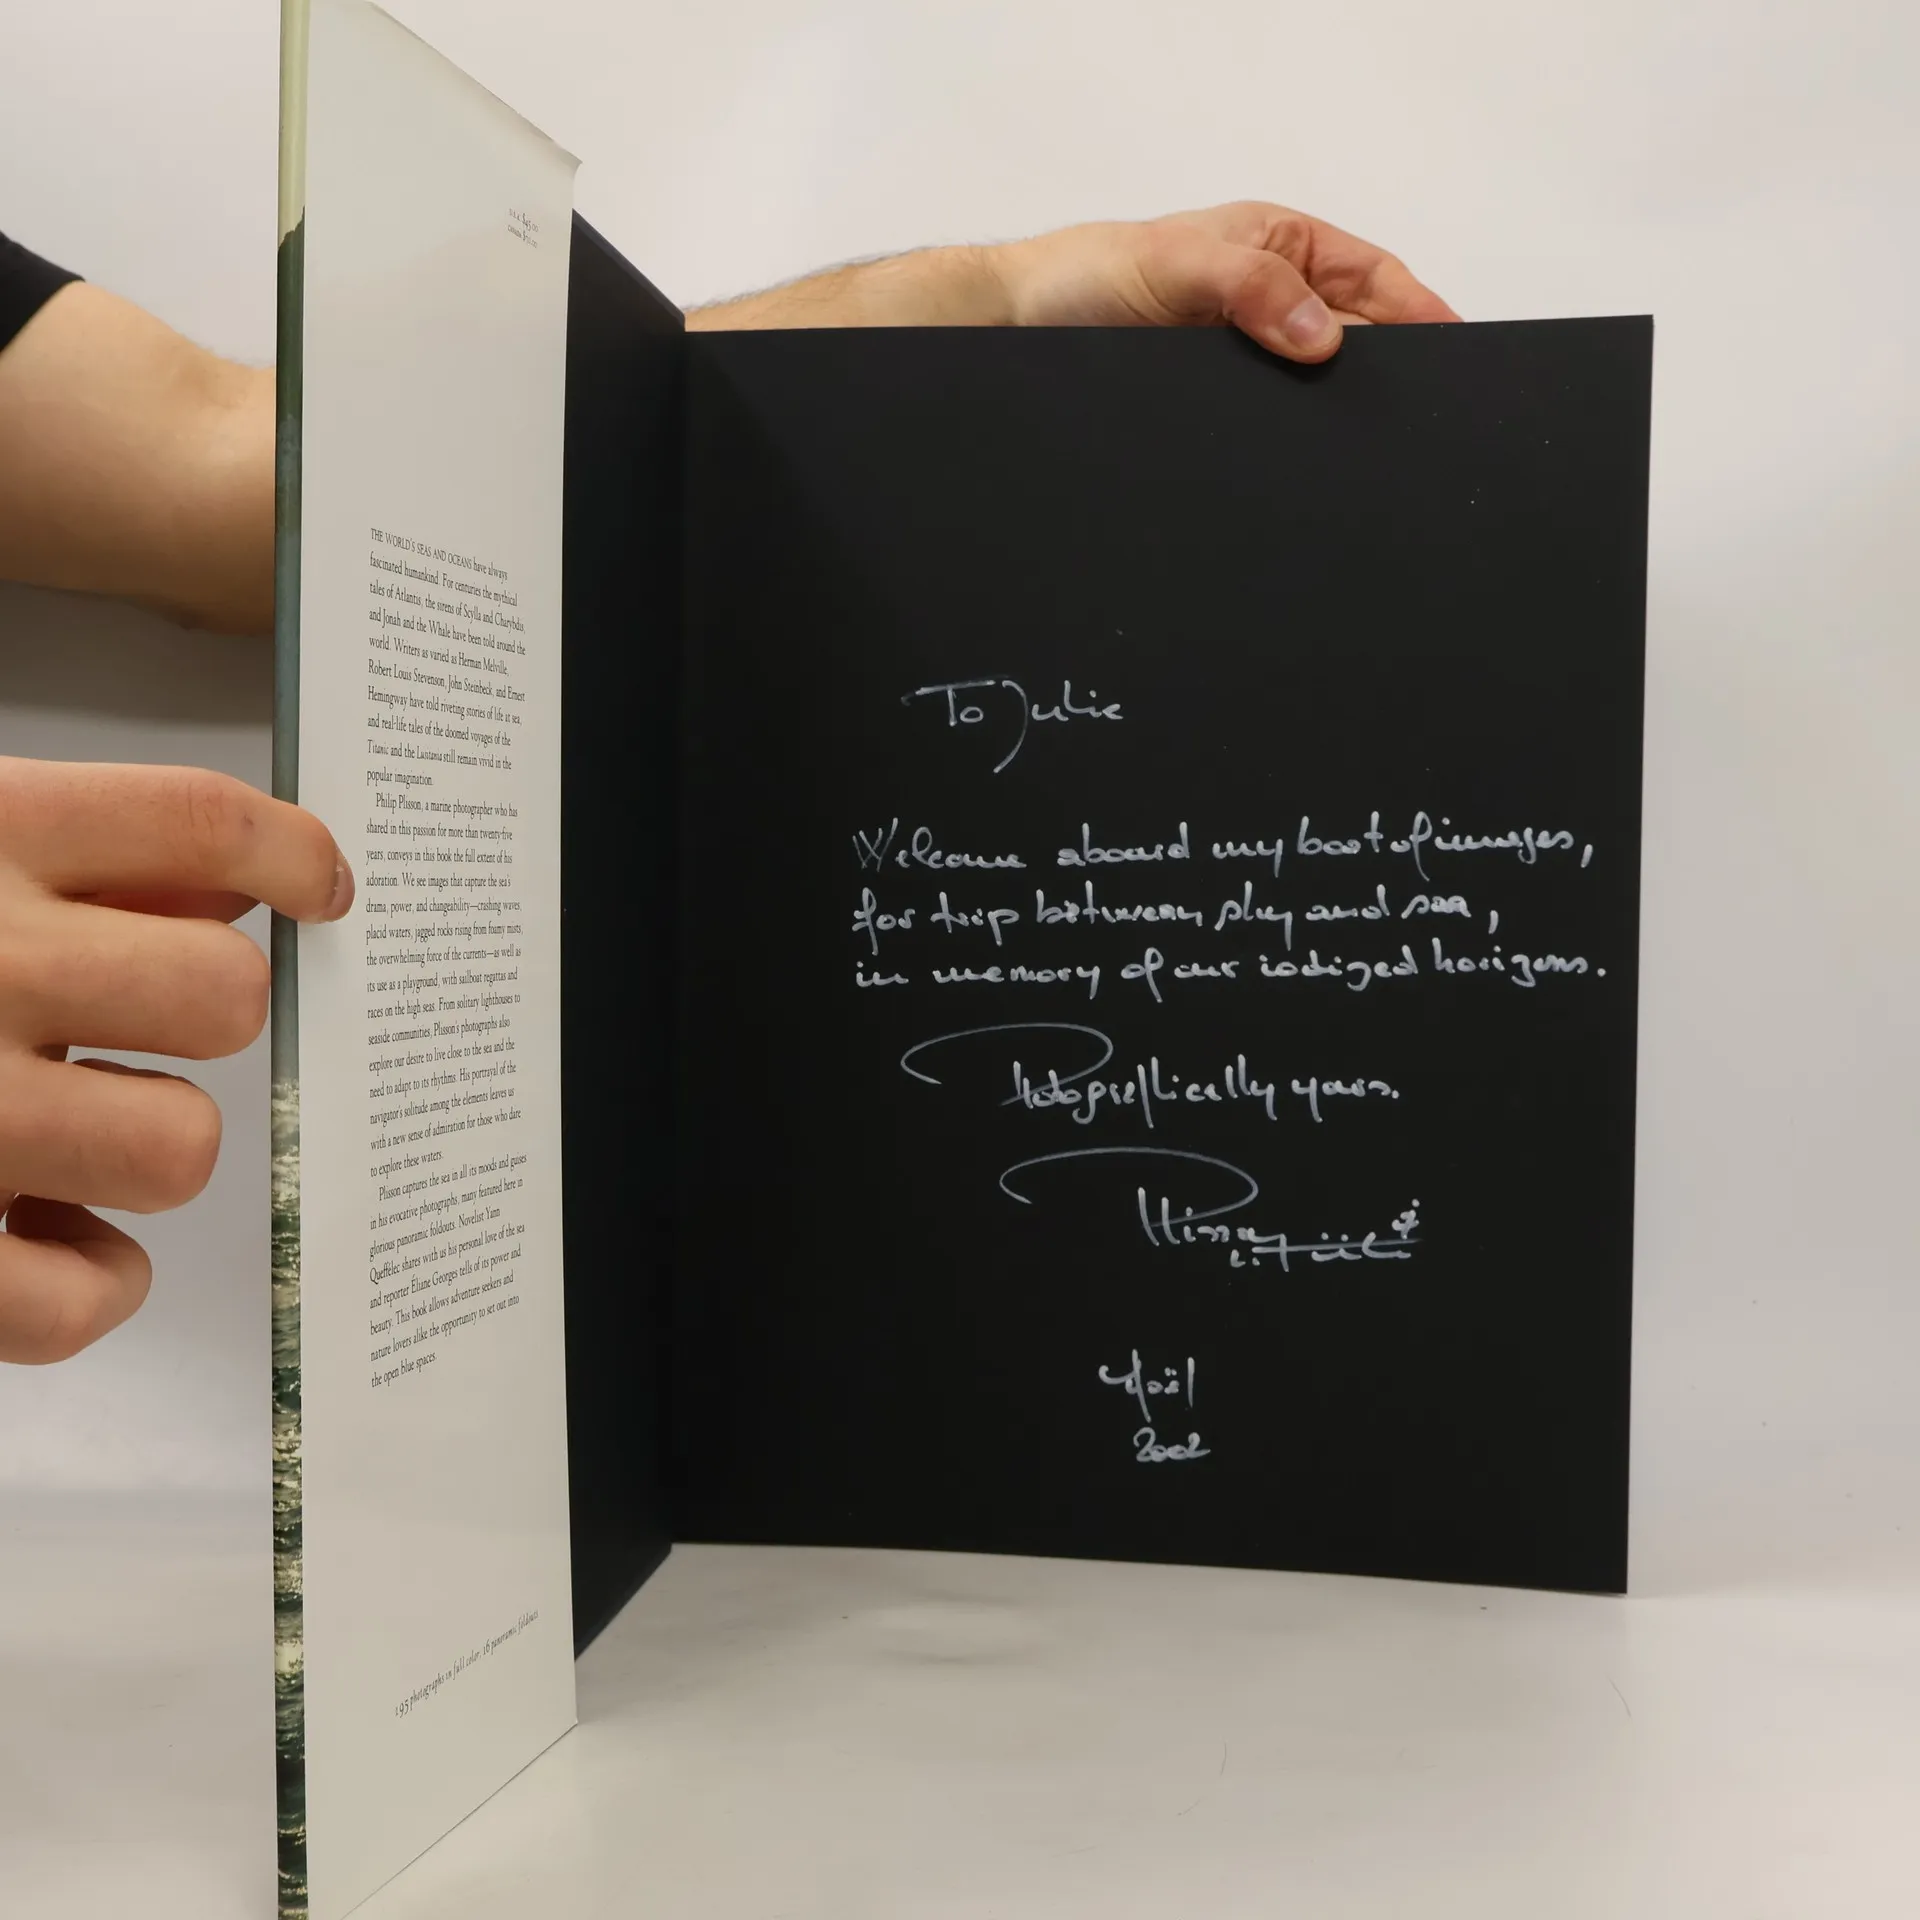 U.S.A. $45.00
CANADA $70.00
THE WORLD'S SEAS AND OCEANS have always
fascinated humankind. For centuries the mythical
tales of Atlantis, the sirens of Scylla and Charybdis,
and Jonah and the Whale have been told around the
world. Writers as varied as Herman Melville,
Robert Louis Stevenson, John Steinbeck, and Ernest
Hemingway have told riveting stories of life at sea,
and real-life tales of the doomed voyages of the
Titanic and the Lusitania still remain vivid in the
popular imagination.
Philip Plisson, a marine photographer who has
shared in this passion for more than twenty-five
years, conveys in this book the full extent of his
adoration. We see images that capture the sea's
drama, power, and changeability—crashing waves,
placid waters, jagged rocks rising from foamy mists,
the overwhelming force of the currents—as well as
its use as a playground, with sailboat regattas and
races on the high seas. From solitary lighthouses to
seaside communities, Plisson's photographs also
explore our desire to live close to the sea and the
need to adapt to its rhythms. His portrayal of the
navigator's solitude among the elements leaves us
with a new sense of admiration for those who dare
to explore these waters.
Plisson captures the sea in all its moods and guises
in his evocative photographs, many featured here in
glorious panoramic foldouts. Novelist Yann
Queffélec shares with us his personal love of the sea
and reporter Éliane Georges tells of its power and
beauty. This book allows adventure seekers and
nature lovers alike the opportunity to set out into
the open blue spaces.
195 photographs in full color, 16 panoramic foldouts
To Julie
Welcome aboard my boat of images,
for trip between sky and sea,
in memory of our iodized horizons.
Photographically yours.
Plisson
Noël
2002